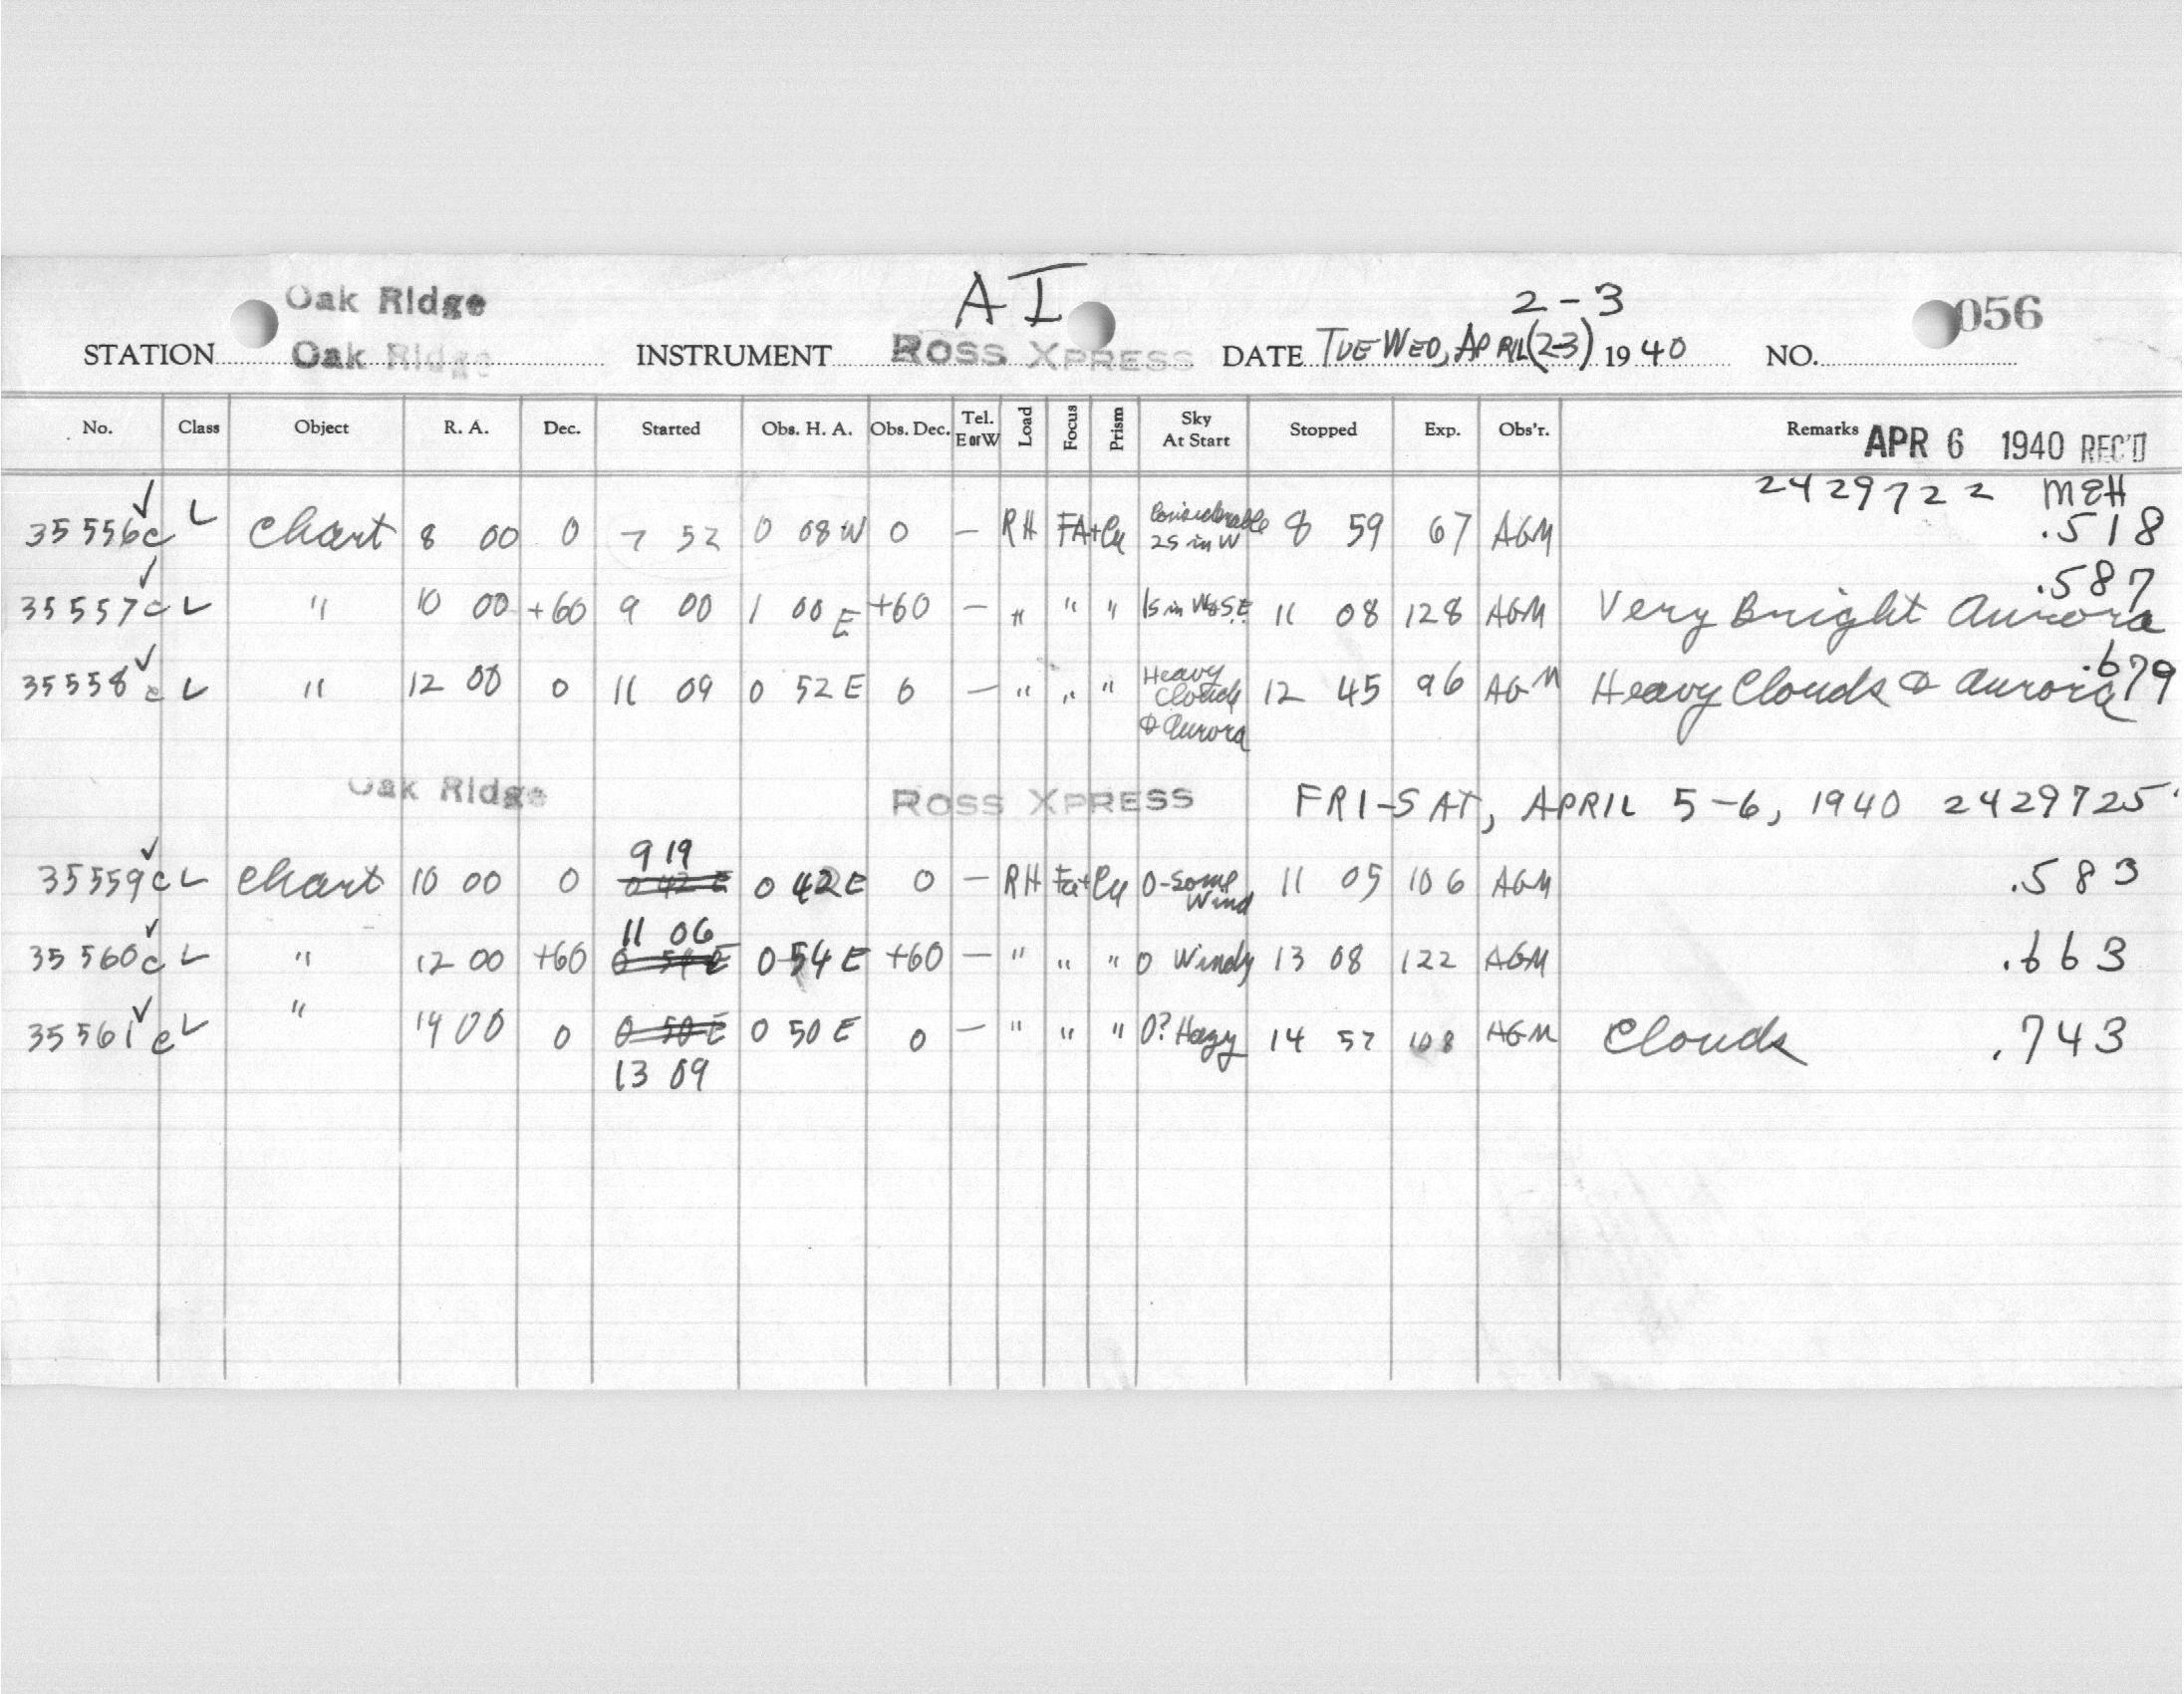 Oak Ridge AI 2-3 056
STATION Oak Ridge INSTRUMENT ROSS XPRESS DATE TUE WED, APRIL (2-3) 1940 NO.
No. Class Object R. A. Dec. Started Obs. H. A. Obs. Dec. Tel. E or W Load Focus Prism Sky At Start Stopped Exp. Obs'r. Remarks APR 6 1940 REC'D
2429722 MEH
35556c L Chart 8 00 0 7 52 0 08 W 0 - RH FA+Cy Considerable 25 in W 8 59 67 AGM .518
35557c L " 10 00 +60 9 00 1 00 E +60 - " " " 15 in W&S.E. 11 08 128 AGM Very Bright Aurora .587
35558c L " 12 00 0 11 09 0 52 E 0 - " " " Heavy Clouds & Aurora 12 45 96 AGM Heavy Clouds & Aurora .679
Oak Ridge ROSS XPRESS FRI-SAT, APRIL 5-6, 1940 2429725.
35559c L Chart 10 00 0 9 19 0 42 E 0 42 E 0 - RH Fa+Cy 0-some Wind 11 05 106 AGM .583
35560c L " 12 00 +60 11 06 0 54 E 0 54 E +60 - " " " 0 Windy 13 08 122 AGM .663
35561c L " 14 00 0 0 50 E 13 09 0 50 E 0 - " " " 0? Hazy 14 57 108 AGM Clouds .743